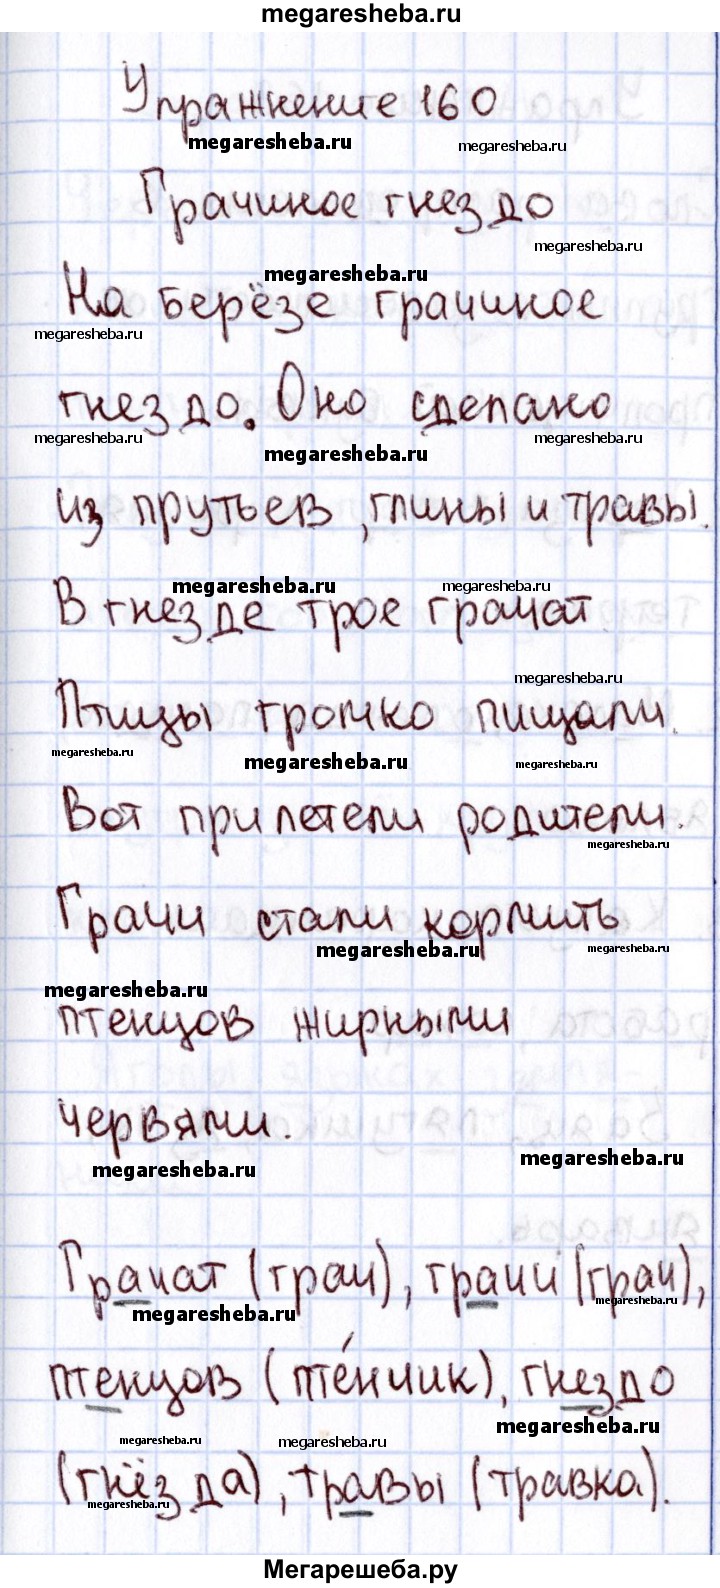 megaresheba.ru
Упражнение 160
megaresheba.ru
megaresheba.ru
Грачиное гнездо
megaresheba.ru
megaresheba.ru
На берёзе грачиное
megaresheba.ru
гнездо. Оно сделано
megaresheba.ru
megaresheba.ru
megaresheba.ru
из прутьев, глины и травы.
megaresheba.ru
megaresheba.ru
В гнезде трое грачат.
megaresheba.ru
Птицы громко пищали.
megaresheba.ru
megaresheba.ru
megaresheba.ru
Вот прилетели родители.
megaresheba.ru
Грачи стали кормить
megaresheba.ru
megaresheba.ru
megaresheba.ru
птенцов жирными
червями.
megaresheba.ru
megaresheba.ru
Грачат (грач), грачи (грач),
megaresheba.ru
megaresheba.ru
птенцов (пте́нчик), гнездо
megaresheba.ru
megaresheba.ru
megaresheba.ru
(гнёзда), травы (травка).
megaresheba.ru
megaresheba.ru
Мегарешеба.ру